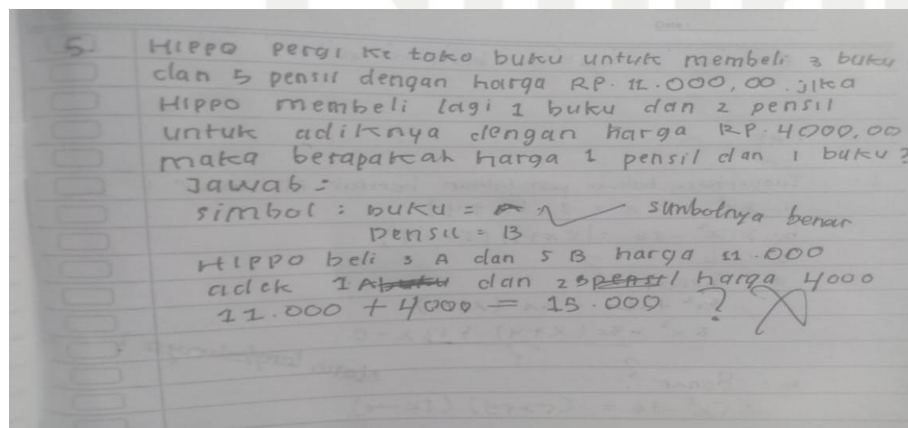 5. HIPPO pergi ke toko buku untuk membeli 3 buku
dan 5 pensil dengan harga RP. 11.000,00. jika
HIPPO membeli lagi 1 buku dan 2 pensil
untuk adiknya dengan harga RP. 4000,00
maka berapakah harga 1 pensil dan 1 buku?
Jawab :
simbol : buku = A simbolnya benar
pensil = B
HIPPO beli 3 A dan 5 B harga 11.000
adek 1 A dan 2 B harga 4000
11.000 + 4000 = 15.000 ?